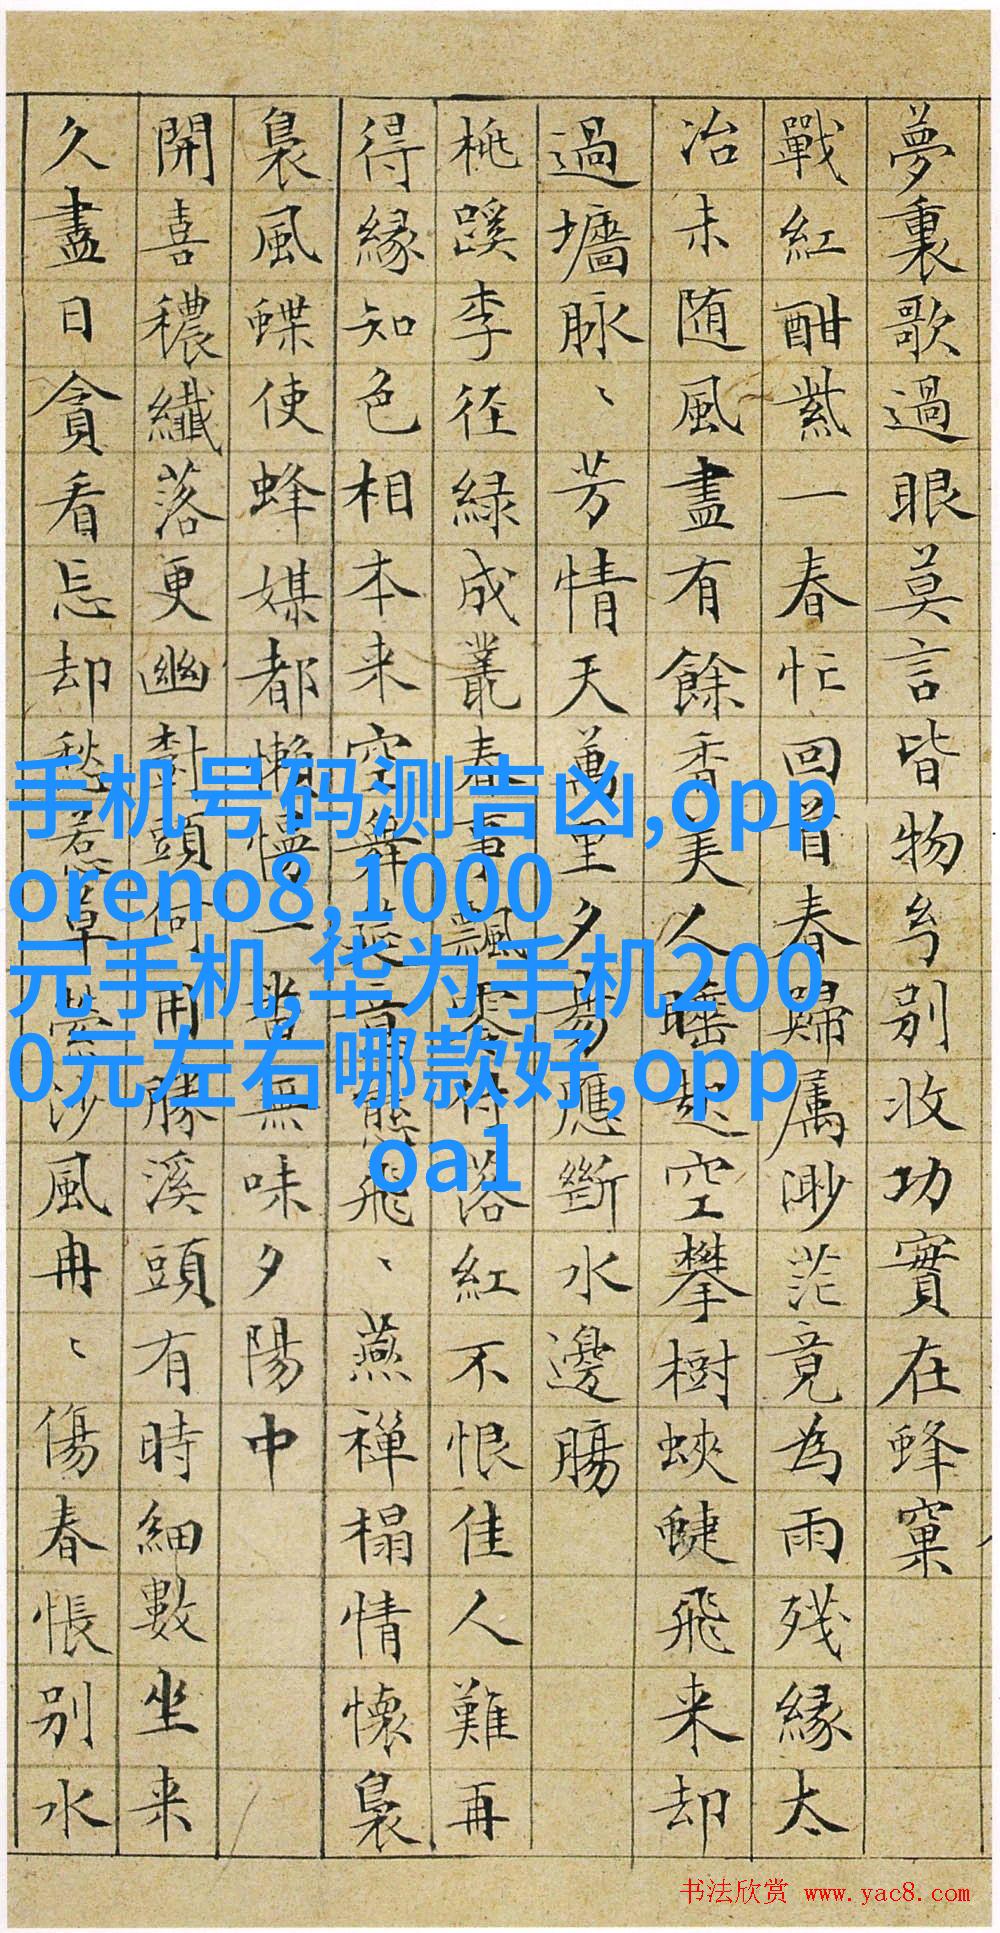 夢裏歌過眼莫言皆物别收功實在蜂窠
戰紅酣紫一春忙回首春歸屬渺茫竟為雨残緣太
冶未随風盡有餘香美人睡起空攀樹蛺蝶飛来却
過墻脉、芳情天萬里夕陽應斷水邊腸
桃蹊李径緑成叢春事飄零付落紅不恨佳人難再
得縁知色相本来空舞筵意態飛、燕禅榻情懷裊
裊風蝶使蜂媒都懶慢一番無味夕陽中
開喜穠纖落更幽樹頭何用勝溪頭有時細數坐来
久盡日貪看忘却愁惹草縈沙風冉、傷春悵别水
手机号码测吉凶,opp
oreno8,1000
元手机,华为手机200
0元左右哪款好,opp
oa1
书法欣赏 www.yac8.com